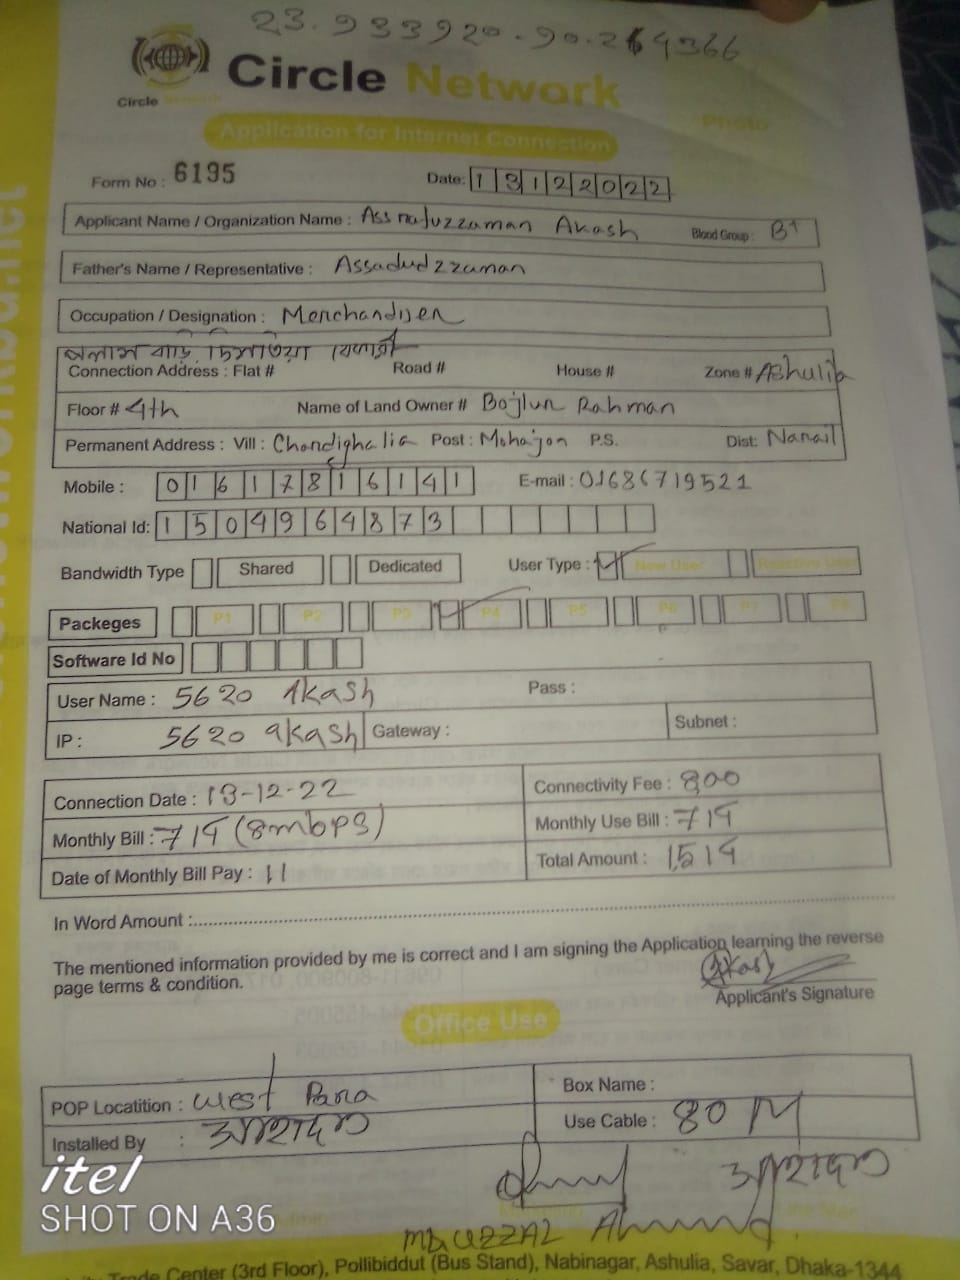 23.933920-90.264366
Circle Network
Circle
Photo
Application for Internet Connection
Form No : 6195
Date: 13122022
Applicant Name / Organization Name : Assrafuzzaman Akash Blood Group : B+
Father's Name / Representative : Assadudzzaman
Occupation / Designation : Merchandiser
পলাশ বাড়ি
Connection Address : Flat # Road # House # Zone # Ashulia
Floor # 4th Name of Land Owner # Bojlur Rahman
Permanent Address : Vill : Chandighalia Post : Mohajon P.S. Dist: Narail
Mobile : 01617816141 E-mail : 01686719521
National Id: 1504964873
Bandwidth Type Shared Dedicated User Type : New User
Packeges P1 P2 P3 P4 P5 P6 P7 P8
Software Id No
User Name : 5620 Akash Pass :
IP : 5620 akash Gateway : Subnet :
Connection Date : 13-12-22 Connectivity Fee : 800
Monthly Bill : 714 (8mbps) Monthly Use Bill : 714
Date of Monthly Bill Pay : 11 Total Amount : 1,514
In Word Amount :
The mentioned information provided by me is correct and I am signing the Application learning the reverse
page terms & condition.
Akash
Applicant's Signature
Office Use
POP Locatition : West Para Box Name :
Installed By : Use Cable : 80 M
Md Uzzal Ahmed
Trade Center (3rd Floor), Pollibiddut (Bus Stand), Nabinagar, Ashulia, Savar, Dhaka-1344
itel
SHOT ON A36